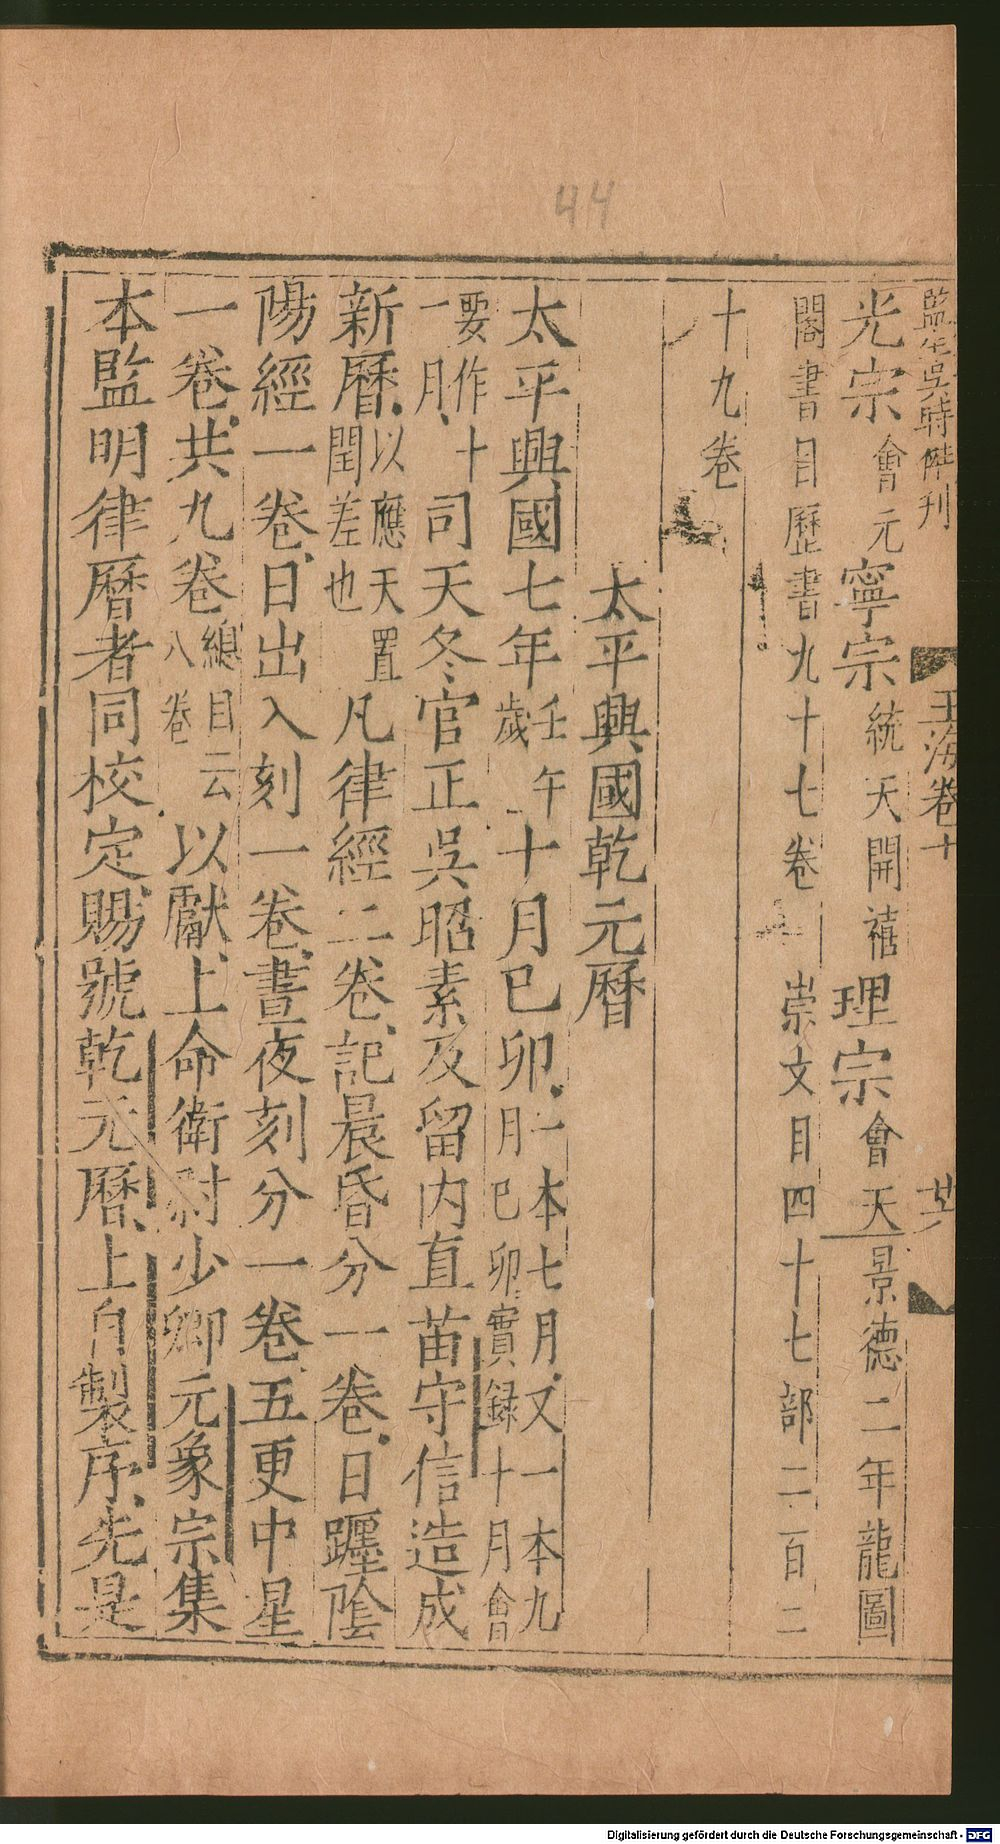 44
監生吳時傑刊
玉海卷十
廿六
光宗會元寧宗統天開禧理宗會天景德二年龍圖
閣書目歷書九十七卷崇文目四十七部二百二
十九卷
太平興國乾元曆
太平興國七年壬午歲十月巳卯一本七月又一本九月巳卯實錄十月會
要作十一月司天冬官正吳昭素及留內直苗守信造成
新曆以應天置閏差也凡律經二卷記晨昏分一卷日躔陰
陽經一卷日出入刻一卷晝夜刻分一卷五更中星
一卷共九卷總目云八卷以獻上命衛尉少卿元象宗集
本監明律曆者同校定賜號乾元曆上自製序先是
Digitalisierung gefördert durch die Deutsche Forschungsgemeinschaft - DFG